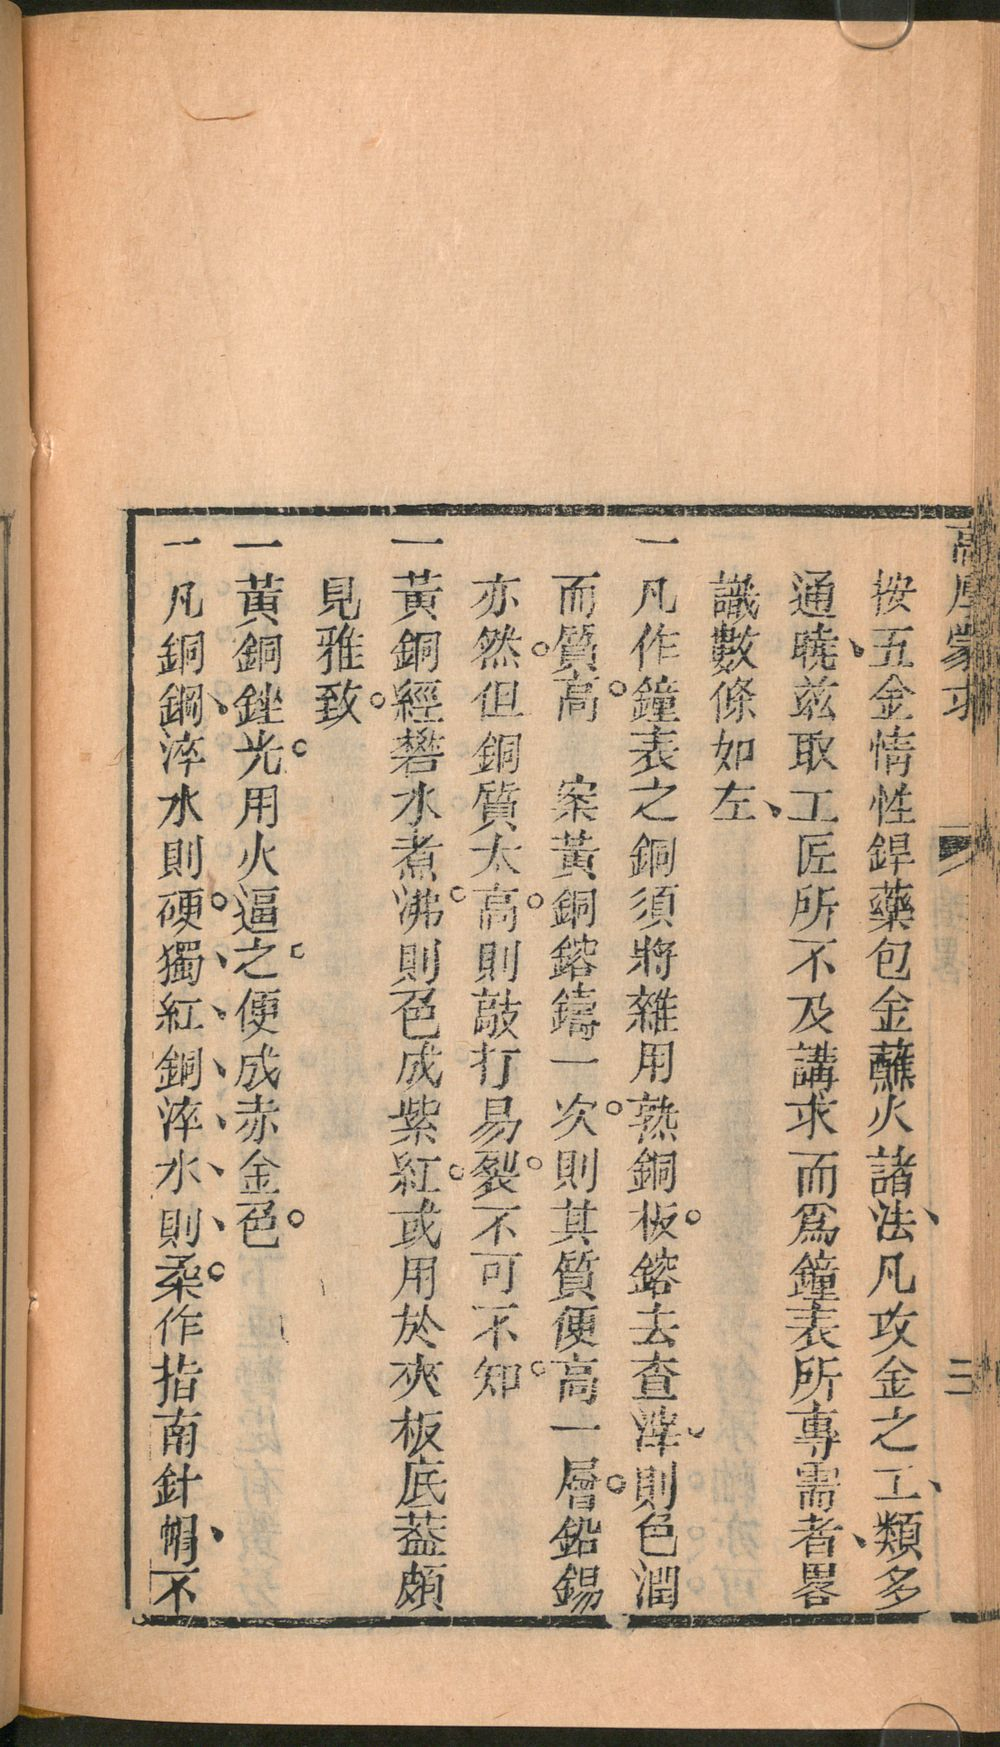 高厚蒙求
三
按五金情性銲藥包金蘸火諸法、凡攻金之工、類多
通曉、茲取工匠所不及講求而爲鐘表所專需者、畧
識數條如左、
一凡作鐘表之銅須將雜用熟銅板。鎔去查滓、則色潤
而質高。　案黃銅鎔鑄一次。則其質便高一層。鉛錫
亦然。但銅質太高。則敲打易裂。不可不知。
一黃銅經礬水煮沸。則色成紫紅。或用於夾板底蓋頗
見雅致。
一黃銅銼光。用火逼之。便成赤金色。
一凡銅鋼、淬水則硬。獨、紅、銅、淬、水、則、柔。作指南針帽、不